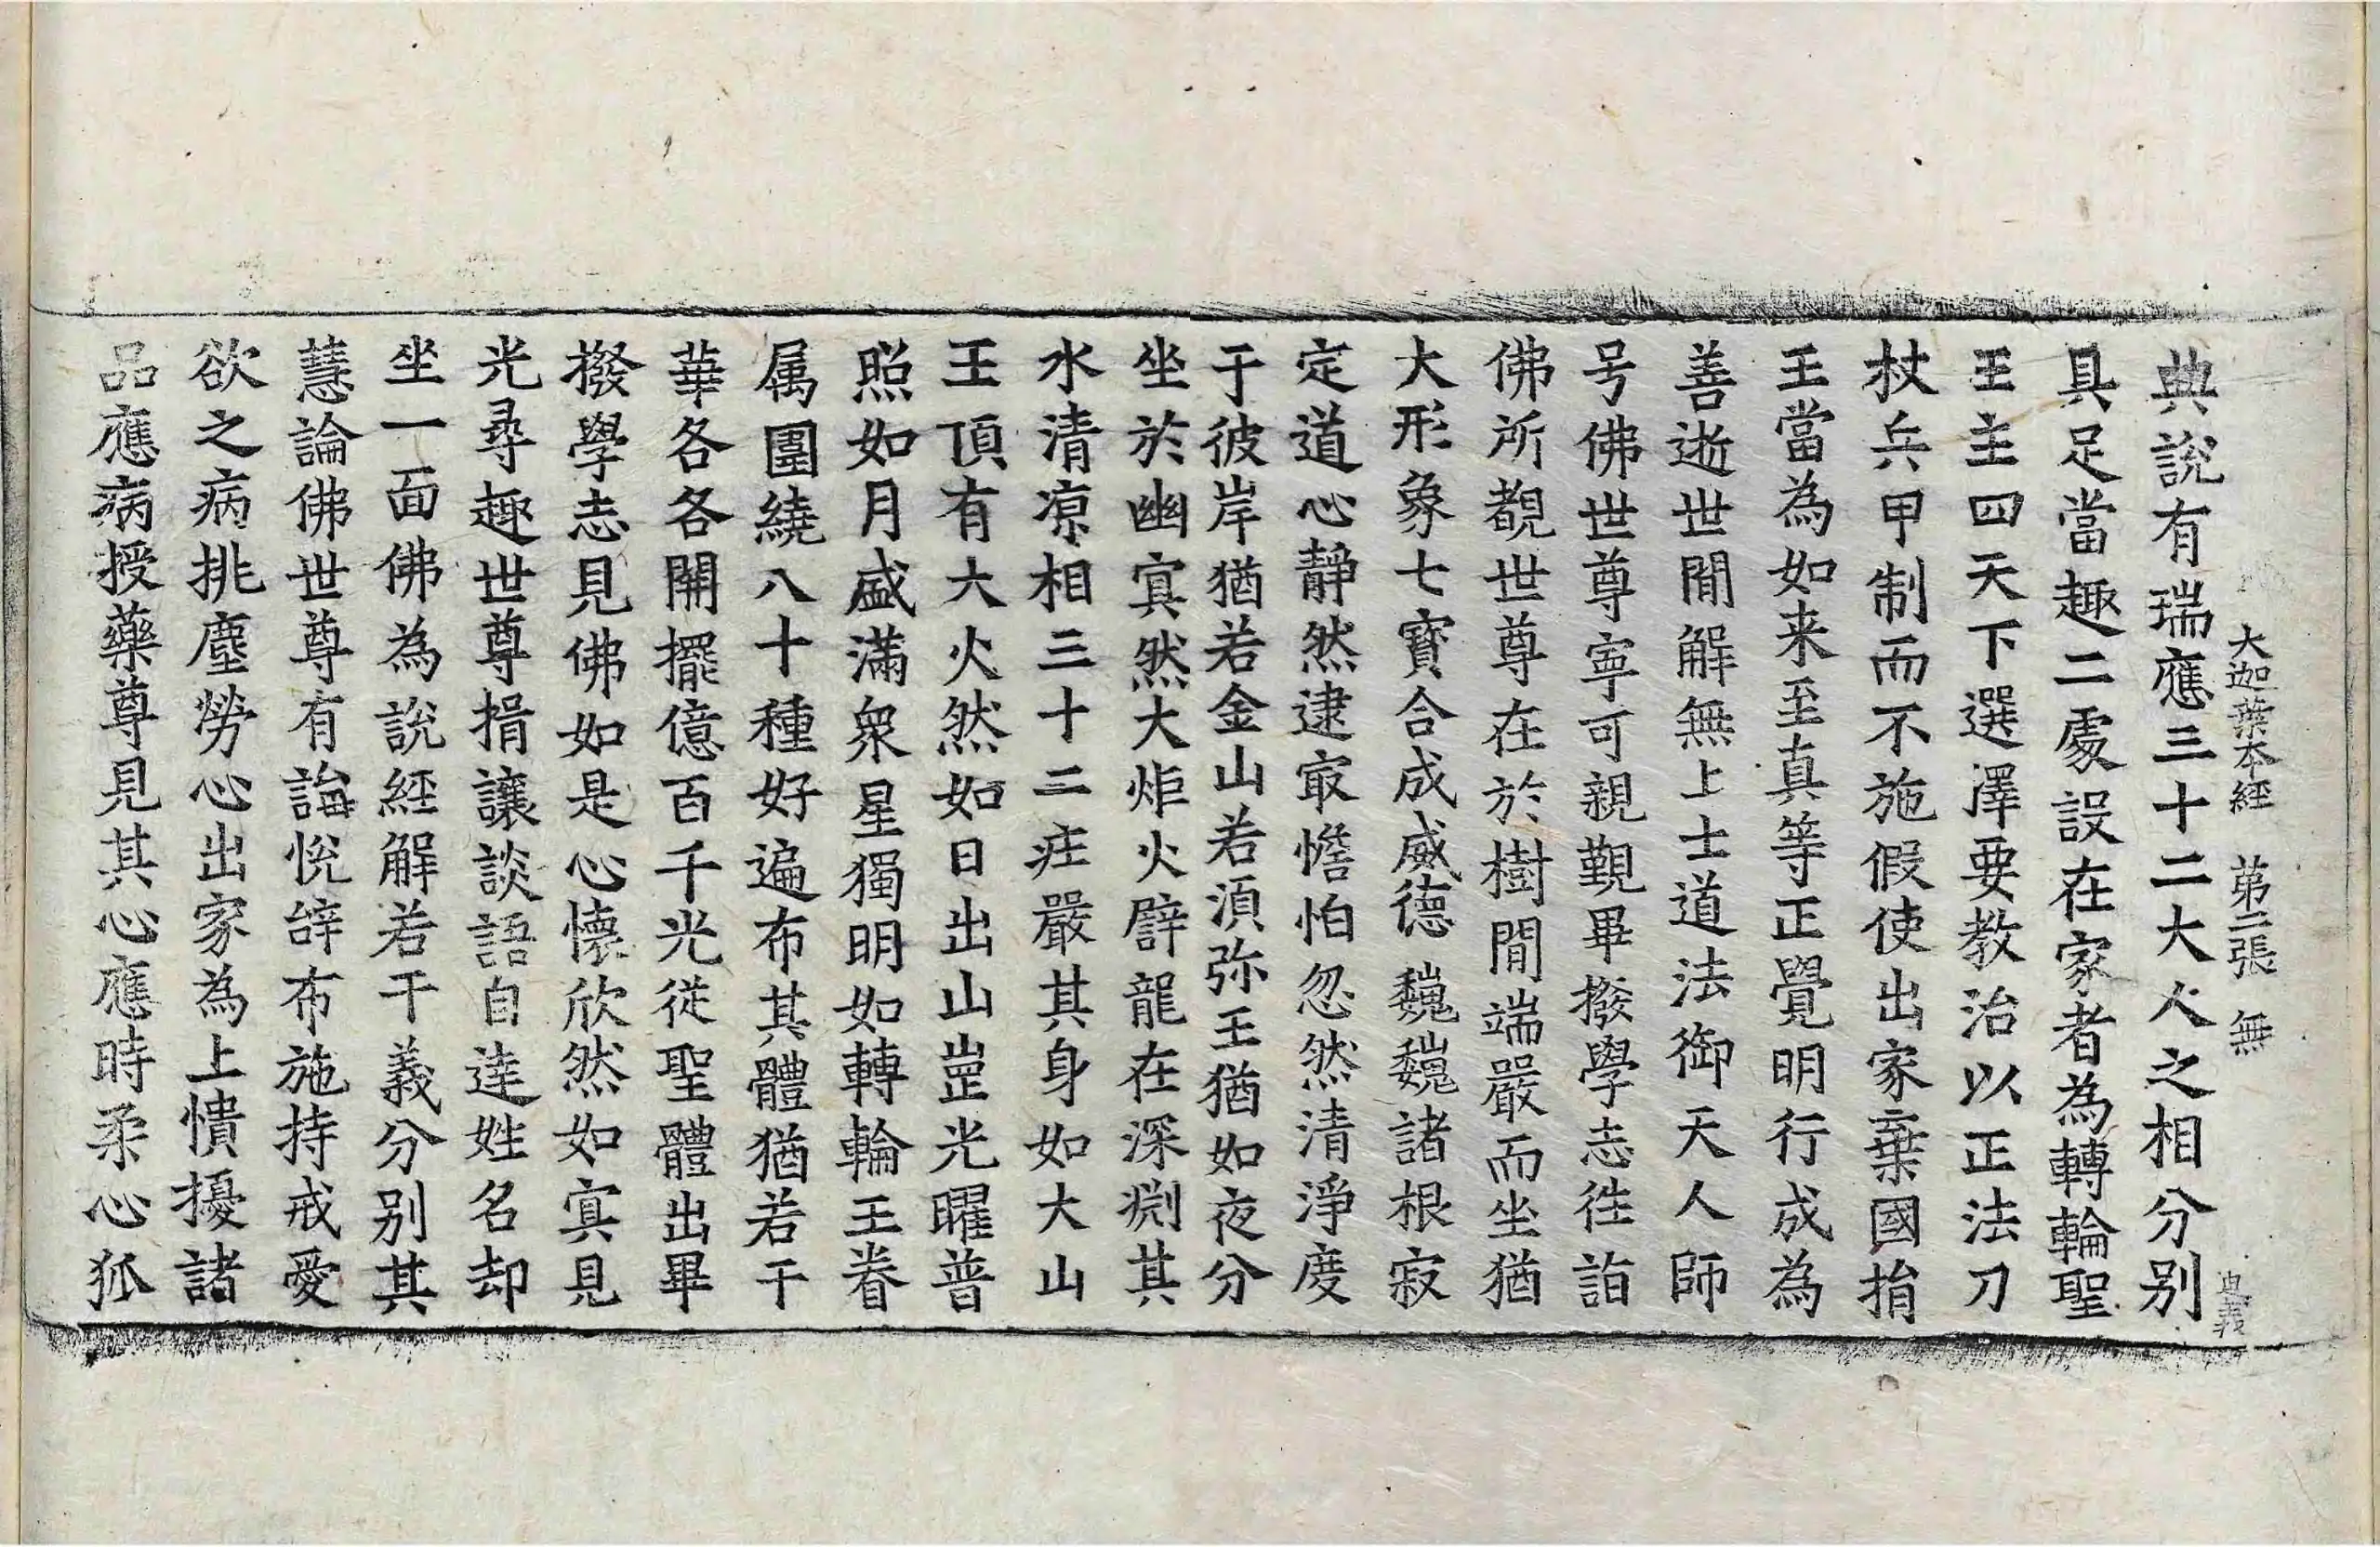 大迦葉本經 第二張 無
典說有瑞應三十二大人之相分別
具足當趣二處設在家者為轉輪聖
王主四天下選澤要教治以正法刀
杖兵甲制而不施假使出家棄國捐
王當為如来至真等正覺明行成為
善逝世閒解無上士道法御天人師
号佛世尊寧可親覲畢撥學志徃詣
佛所覩世尊在於樹閒端嚴而坐猶
大形象七寶合成威德巍巍諸根寂
定道心靜然逮寂憺怕忽然清淨度
于彼岸猶若金山若須弥王猶如夜分
坐於幽寘然大炬火辟龍在深渕其
水清凉相三十二疰嚴其身如大山
王頂有大火然如日出山崗光曜普
照如月盛滿衆星獨明如轉輪王眷
属圍繞八十種好遍布其體猶若干
華各各開擺億百千光従聖體出畢
撥學志見佛如是心懷欣然如寘見
光尋趣世尊揖讓談語自達姓名却
坐一面佛為說經解若干義分別其
慧論佛世尊有誨恱辝布施持戒愛
欲之病挑塵勞心出家為上憒擾諸
品應病授藥尊見其心應時柔心狐